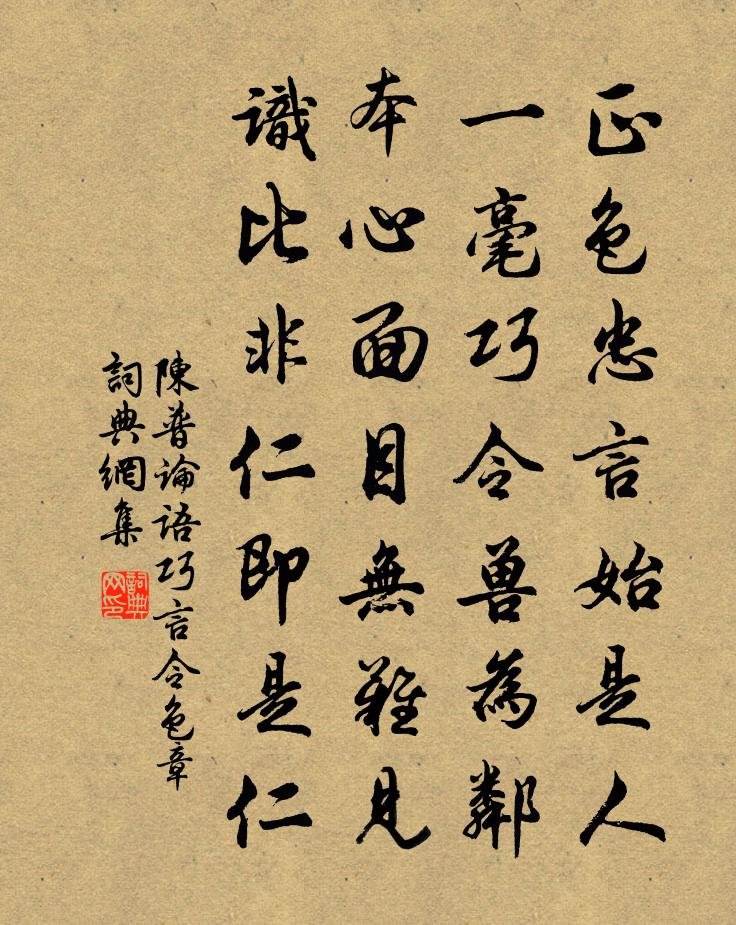 正色忠言始是人
一毫巧令兽為鄰
本心面目無難見
識比非仁即是仁
陳普論語巧言令色章
詞典網集
詞典网印